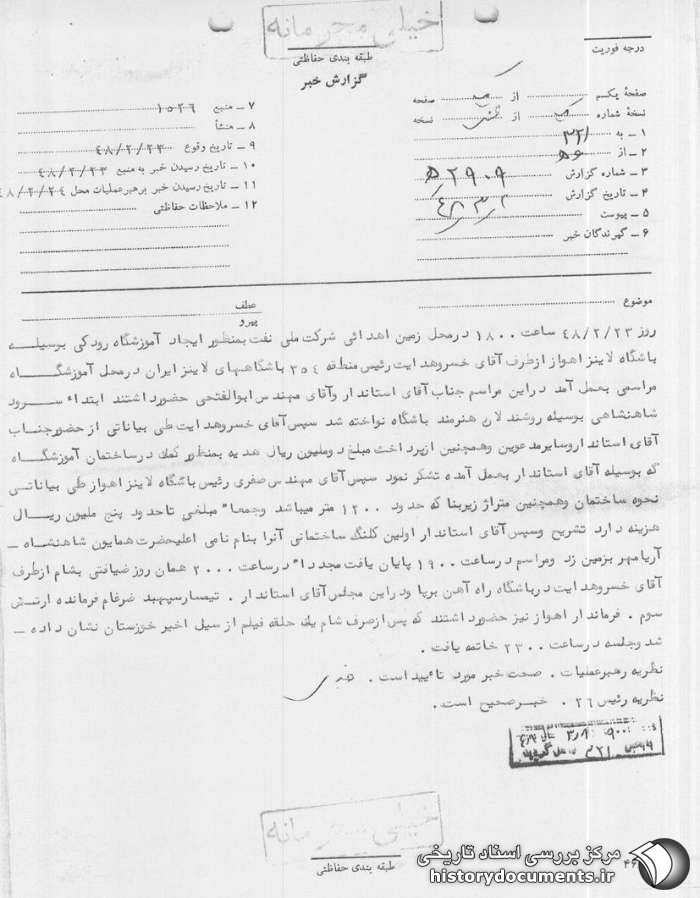 خیلی محرمانه
درجه فوریت
طبقه بندی حفاظتی
گزارش خبر
صفحهٔ یکم از صفحه
نسخهٔ شماره از نسخه
۱ ـ به ۳۲۱
۲ ـ از ۵ ه
۳ ـ شماره گزارش ۲۹۰۹ ه
۴ ـ تاریخ گزارش ۴۸/۳/۱
۵ ـ پیوست
۶ ـ گیرندگان خبر
۷ ـ منبع ۱۵۲۶
۸ ـ منشأ
۹ ـ تاریخ وقوع ۴۸/۲/۲۳
۱۰ ـ تاریخ رسیدن خبر به منبع ۴۸/۲/۲۳
۱۱ ـ تاریخ رسیدن خبر برهبرعملیات محل ۴۸/۲/۲۴
۱۲ ـ ملاحظات حفاظتی
موضوع
عطف
پیرو
روز ۴۸/۲/۲۳ ساعت ۱۸۰۰ درمحل زمین اهدائی شرکت ملی نفت بمنظور ایجاد آموزشگاه رودکی بوسیله
باشگاه لاینز اهواز ازطرف آقای خسروهدایت رئیس منطقه ۳۵۴ باشگاههای لاینز ایران درمحل آموزشگاه
مراسمی بعمل آمد دراین مراسم جناب آقای استاندار وآقای مهندس ابوالفتحی حضورداشتند ابتداء سرود
شاهنشاهی بوسیله روشندلان هنرمند باشگاه نواخته شد سپس آقای خسروهدایت طی بیاناتی ازحضورجناب
آقای استانداروسایرمدعوین وهمچنین ازپرداخت مبلغ دومیلیون ریال هدیه بمنظور کمک درساختمان آموزشگاه
که بوسیله آقای استاندار بعمل آمده تشکر نمود سپس آقای مهندس صفری رئیس باشگاه لاینز اهواز طی بیاناتی
نحوه ساختمان وهمچنین متراژ زیربنا که حدود ۱۲۰۰ متر میباشد وجمعا" مبلغی تاحدود پنج ملیون ریال
هزینه دارد تشریح وسپس آقای استاندار اولین کلنگ ساختمانی آنرا بنام نامی اعلیحضرت همایون شاهنشاه ـ
آریامهر بزمین زد ومراسم درساعت ۱۹۰۰ پایان یافت مجددا" درساعت ۲۰۰۰ همان روز ضیافتی بشام ازطرف
آقای خسروهدایت درباشگاه راه آهن برپا ودراین مجلس آقای استاندار . تیمسارسپهبد ضرغام فرمانده ارتش
سوم . فرماندار اهواز نیز حضورداشتند که پس ازصرف شام یک حلقه فیلم از سیل اخیر خوزستان نشان داده ـ
شد وجلسه درساعت ۲۳۰۰ خاتمه یافت .
نظریه رهبرعملیات . صحت خبر مورد تائیید است .
نظریه رئیس ۲۶ . خبرصحیح است .
خیلی محرمانه
طبقه بندی حفاظتی
۴۶
مرکز بررسی اسناد تاریخی
historydocuments.ir